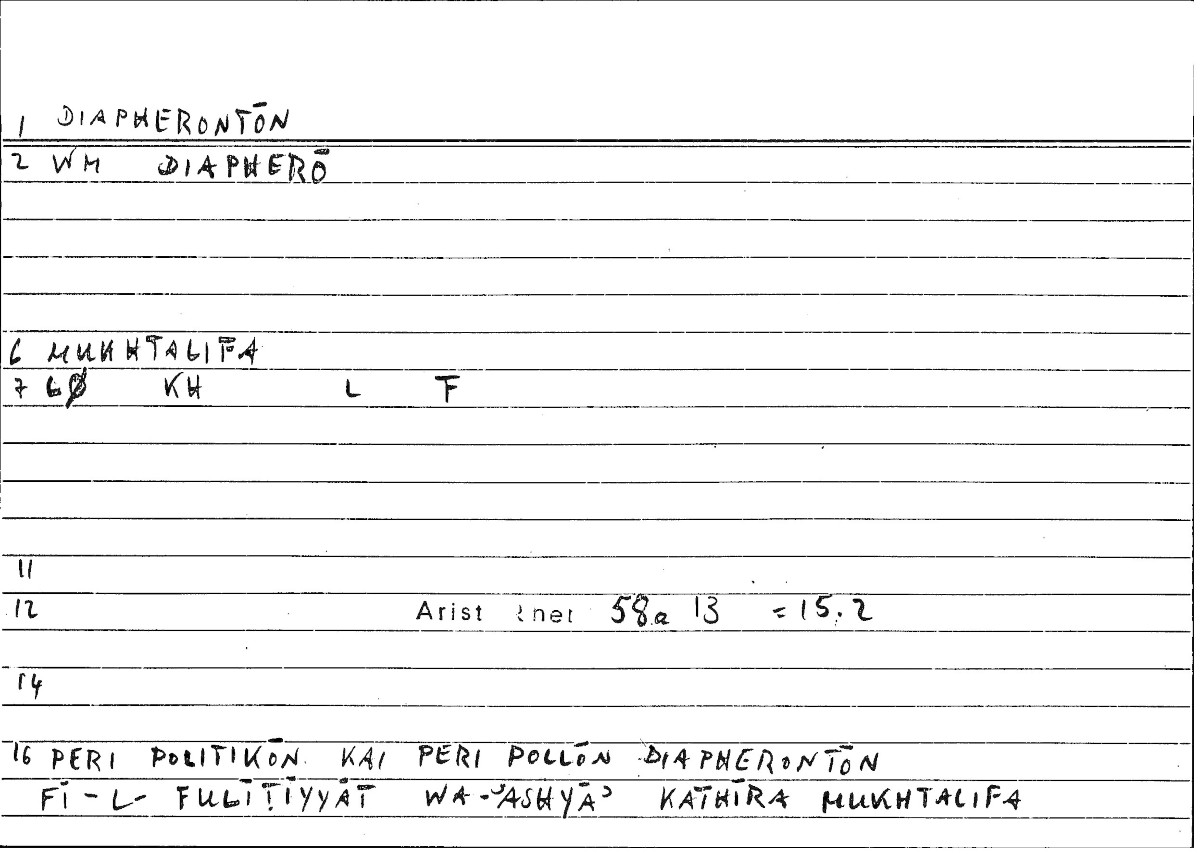 1 DIAPHERONTŌN
2 WM DIAPHERŌ
6 MUKHTALIFA
7 60 KH L F
11
12 Arist 58a 13 = 15.2
14
16 PERI POLITIKŌN KAI PERI POLLŌN DIAPHERONTŌN
FĪ-L-FULĪṬĪYYĀT WA-ʾASHYĀʾ KATHĪRA MUKHTALIFA